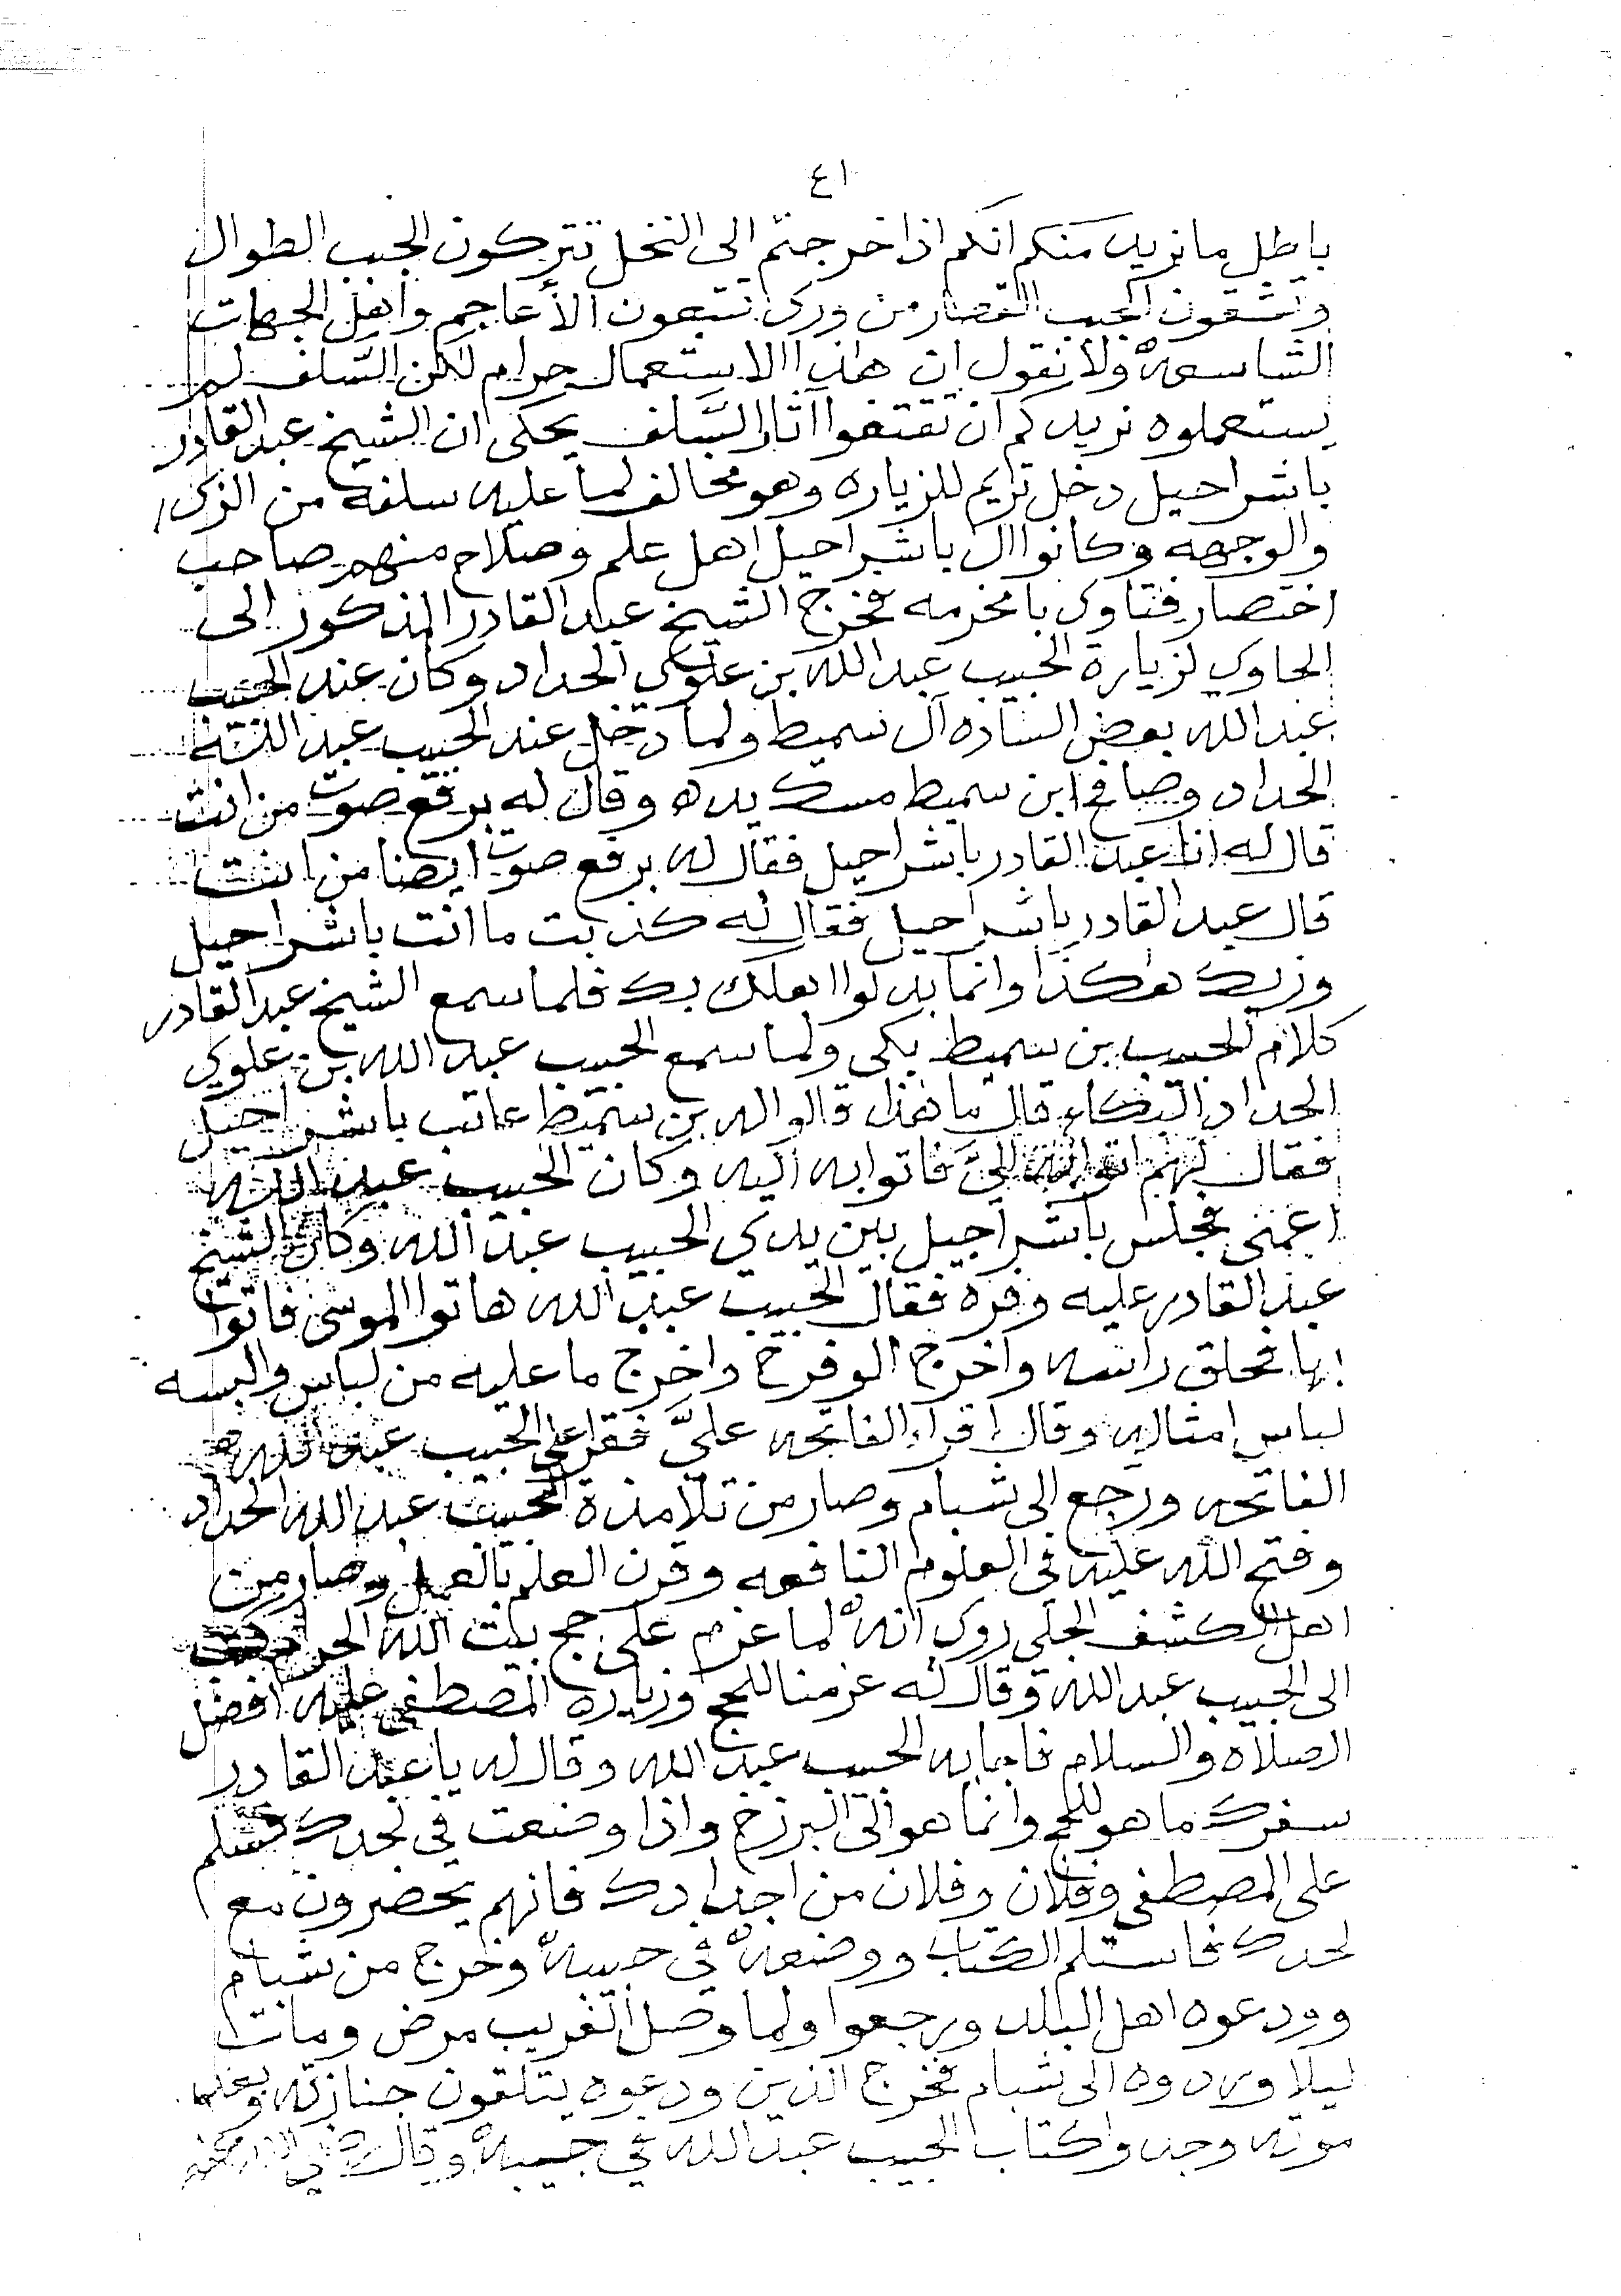 ٤١
باطل ما نريد منكم انكم اذا خرجتم الى النخل تتركون الجبب الطوال
وتشقون الجبب القصار من ورى تتبعون الأعاجم واهل الجهات
الشاسعة ولا نقول ان هذا الاستعمال حرام لكن السّلف لم
يستعملوه نريدكم ان تقتفوا آثار السّلف يحكى ان الشيخ عبد القادر
باشراحيل دخل تريم للزياره وهو مخالف لما عليه سلفه من الزي
والوجهه وكانوا ال باشراحيل اهل علم وصلاح منهم صاحب
اختصار فتاوى بامخرمه فخرج الشيخ عبد القادر المذكور الى
الحاوي لزيارة الحبيب عبد الله بن علوي الحداد وكان عند الحبيب
عبد الله بعض الساده آل سميط ولما دخل عند الحبيب عبد الله
الحداد وصافح ابن سميط مسك يده وقال له برفع صوت من انت
قال له انا عبد القادر باشراحيل فقال له برفع صوت ايضا من انت
قال عبد القادر باشراحيل فقال له كذبت ما انت باشراحيل
وزيك هكذا وانما بدلوا اهلك بك فلما سمع الشيخ عبد القادر
كلام الحبيب بن سميط بكى ولما سمع الحبيب عبد الله بن علوي
الحداد البكاء قال ما هذا قالوا له بن سميط عاتب باشراحيل
فقال لهم اتوا به اليَّ فاتوا به اليه وكان الحبيب عبد الله
اعمى فجلس باشراحيل بين يدي الحبيب عبد الله وكان الشيخ
عبد القادر عليه وفره فقال الحبيب عبد الله هاتوا الموسى فاتوا
بها فحلق راسه واخرج الوفرة واخرج ما عليه من لباس والبسه
لباس امثاله وقال اقراء الفاتحه عليَّ فقرا على الحبيب عبد الله
الفاتحه ورجع الى شبام وصار من تلامذة الحبيب عبد الله الحداد
وفتح الله عليه في العلوم النافعه وقرن العلم بالعمل وصار من
اهل الكشف الجلي روى انه لما عزم على حج بيت الله الحرام كتب
الى الحبيب عبد الله وقال له عزمنا للحج وزيارة المصطفى عليه افضل
الصلاه والسلام فاجابه الحبيب عبد الله وقال له يا عبد القادر
سفرك ما هو للحج وانما هو الى البرزخ واذا وضعت في لحدك فسلم
على المصطفى وفلان وفلان من اجدادك فانهم يحضرون مع
لحدك فاستلم الكتاب ووضعه في جيبه وخرج من شبام
وودعوه اهل البلد ورجعوا ولما وصل الغريب مرض ومات
ليلا وردوه الى شبام فخرج الذين ودعوه يتلقون جنازته وبعد
موته وجدوا كتاب الحبيب عبد الله في جيبه وقال